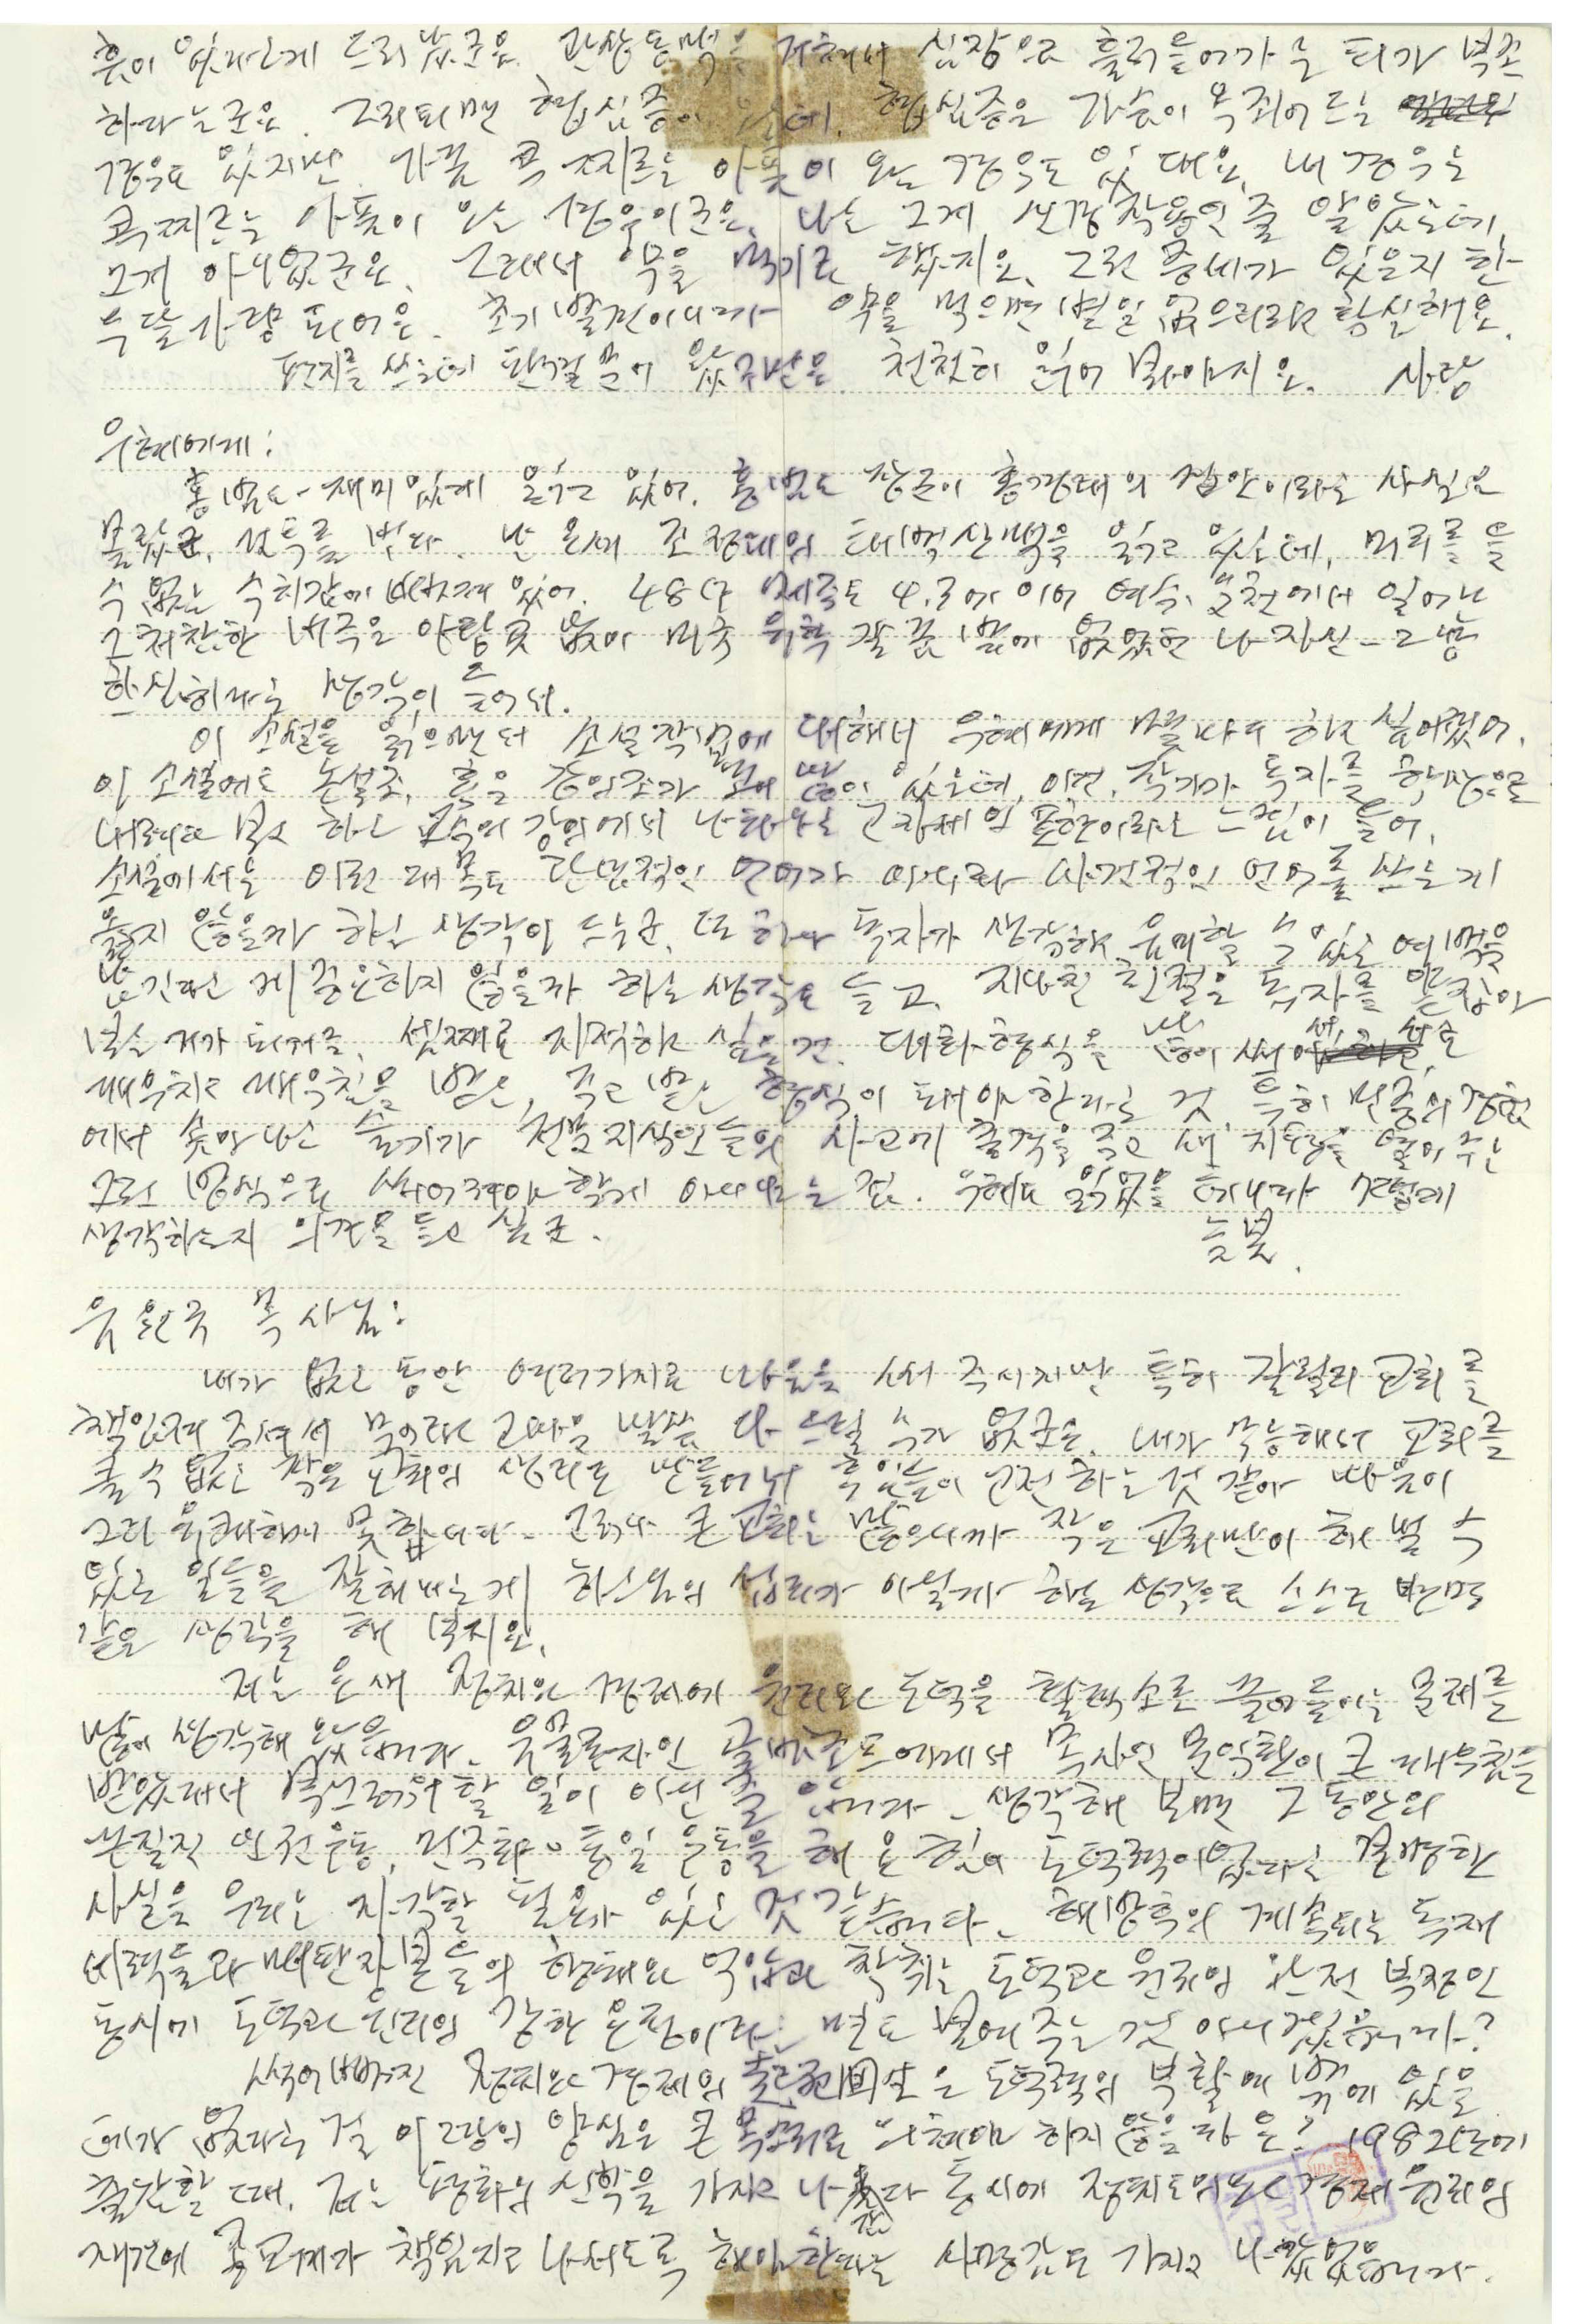 흔이 있다는게 드러났군요. 관상동맥을 거쳐서 심장으로 흘러들어가는 피가 부족
하다는군요. 그리되면 협심증이 되는데, 협심증은 가슴이 옥죄어드는
경우도 있지만 가끔 콕 찌르는 아픔이 오는 경우도 있대요. 내 경우는
콕 찌르는 아픔이 오는 경우이군요. 나는 그게 신경작용인 줄 알았는데,
그게 아니었군요. 그래서 약을 먹기로 했지요. 그런 증세가 있은지 한
두 달 가량 되어요. 초기 발견이니까 약을 먹으면 별일 없으리라 확실해요.
편지를 쓰는데 한겨레 논단이 왔군요. 천천히 읽어 보아야지요. 사랑
우혜에게:
홍범도 재미있게 읽고 있어. 홍범도 장군이 홍경래의 집안이라는 사실은
몰랐군. 난 요새 조정래의 태백산맥을 읽고 있는데, 머리를 들
수 없는 수치감에 빠져 있어. 48년 제주도 4.3에 이어 여수, 순천에서 일어난
그 처참한 비극을 아랑곳 없이 미국 유학 갈 꿈밖에 없었던 나 자신 그냥
한심하다는 생각이 들어서.
이 소설을 읽으면서 소설작법에 대해서 우혜에게 말하고 하고 싶어졌어.
이 소설에는 논설조, 혹은 강의조가 꽤 많이 있는데, 이건 작가가 독자를
내려다 보고 하는 교수의 강의에서 나타나는 표현이라는 느낌이 들어.
소설에서는 이런 대목도 관념적인 언어가 아니라 사건적인 언어를 쓰는게
옳지 않을까 하는 생각이 드는군. 또 하나 독자가 생각하고 음미할 수 있는 여백을
남긴다는 게 중요하지 않을까 하는 생각도 들고. 지나친 친절은 독자를
보는 거가 되거든. 셋째로 지적하고 싶은 건 대화형식을 많이 써서 서로
깨우치고 깨우침을 받는, 주고 받는 형식이 돼야 한다는 것. 특히 민중의 경험
에서 솟아나는 슬기가 전문 지식인들의 사고에 충격을 주고 새 지평을 열어주는
그런 방식으로 씌어져야 할게 아니냐는 점. 우혜도 읽었을 테니까 어떻게
생각하는지 의견을 듣고 싶군.
늦봄.
유원규 목사님:
내가 없는 동안 여러가지로 마음을 써 주시지만 특히 갈릴리 교회를
책임져 주셔서 무어라 고마운 말씀 다 드릴 수가 없군요. 내가 무능해서 교회를
클 수 없는 작은 교회의 생리로 만들어서 목사님들이 고전하는 것 같아 마음이
그리 유쾌하지 못합니다. 그러나 큰 교회는 많으니까 작은 교회만이 해낼 수
있는 일들을 잘해내는게 하느님의 섭리가 아닐까 하는 생각으로 스스로 변명
같은 생각을 해 보지요.
저는 요새 정치와 경제에 윤리와 도덕을 활력소로 끌어들이는 문제를
많이 생각해 왔습니다. 유물론자인 고르바초프에게서 목사인 문익환이 큰 깨우침을
받았대서 부끄러워할 일이 아닌 줄 압니다. 생각해 보면 그 동안의
끈질긴 인권운동, 민주화·통일 운동을 해 온 힘이 도덕력이었다는 분명한
사실을 우리는 자각할 필요가 있는 것 같습니다. 해방후의 계속되는 독재
세력들과 재벌들의 행태와 억압과 착취는 도덕과 윤리의 완전 부정인
동시에 도덕과 윤리의 강한 요청이라는 면도 보여 주는 것 아니겠습니까?
썩어빠진 정치와 경제의 起死回生은 도덕력의 부활에 밖에 있을
데가 없다는 걸 이 나라의 양심은 큰 목소리로 외쳐야 하지 않을까요? 1982년에
출감할 때, 저는 평화의 신학을 가지고 나왔다 동시에 정치도의와 경제윤리의
재건에 종교계가 책임지고 나서도록 해야 한다는 사명감도 가지고 나왔었습니다.